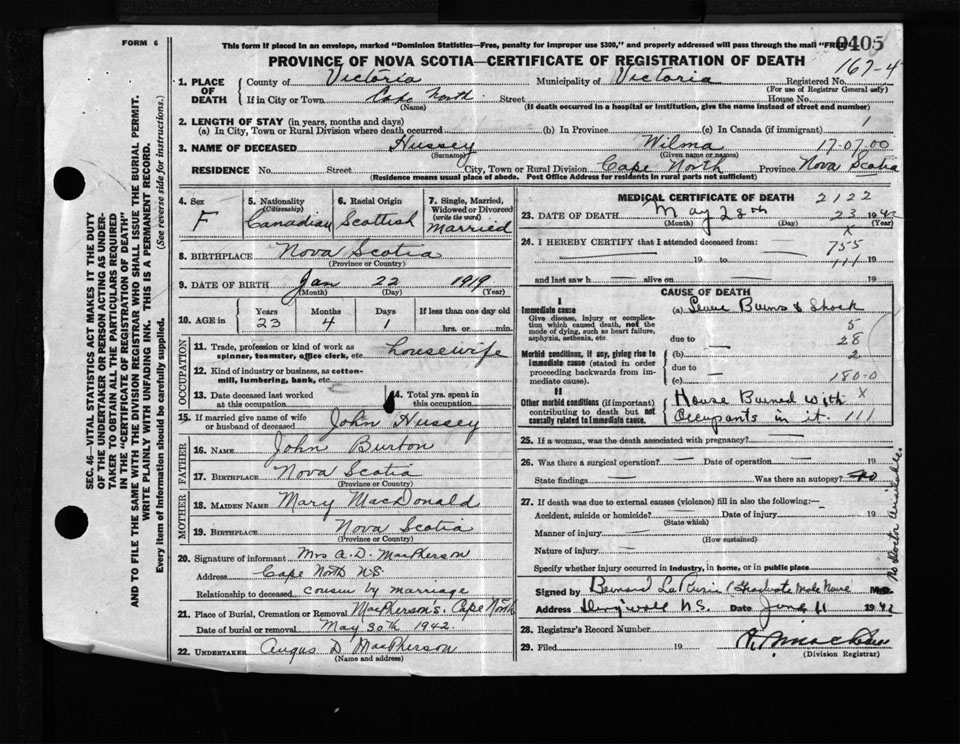 FORM 6
This form if placed in an envelope, marked "Dominion Statistics—Free, penalty for improper use $300," and properly addressed will pass through the mail "FREE"
0405
PROVINCE OF NOVA SCOTIA—CERTIFICATE OF REGISTRATION OF DEATH
167-4
1. PLACE OF DEATH County of Victoria Municipality of Victoria Registered No.
(For use of Registrar General only)
If in City or Town Cape North Street House No.
(Name) (If death occurred in a hospital or institution, give the name instead of street and number)
2. LENGTH OF STAY (in years, months and days)
(a) In City, Town or Rural Division where death occurred (b) In Province (c) In Canada (if immigrant) 1
3. NAME OF DECEASED Hussey Wilma 17-07.00
(Surname) (Given name or names)
RESIDENCE No. Street City, Town or Rural Division Cape North Province Nova Scotia
(Residence means usual place of abode. Post Office Address for residents in rural parts not sufficient)
4. Sex F
5. Nationality (Citizenship) Canadian
6. Racial Origin Scottish
7. Single, Married, Widowed or Divorced (write the word) Married
8. BIRTHPLACE Nova Scotia
(Province or Country)
9. DATE OF BIRTH Jan 22 1919
(Month) (Day) (Year)
10. AGE in Years 23 Months 4 Days 1 If less than one day old hrs. or min.
OCCUPATION
11. Trade, profession or kind of work as spinner, teamster, office clerk, etc. housewife
12. Kind of industry or business, as cotton-mill, lumbering, bank, etc.
13. Date deceased last worked at this occupation 14. Total yrs. spent in this occupation
15. If married give name of wife or husband of deceased John Hussey
FATHER
16. NAME John Burton
17. BIRTHPLACE Nova Scotia
(Province or Country)
MOTHER
18. MAIDEN NAME Mary MacDonald
19. BIRTHPLACE Nova Scotia
(Province or Country)
20. Signature of informant Mrs A. D. MacPherson
Address Cape North N.S.
Relationship to deceased cousin by marriage
21. Place of Burial, Cremation or Removal MacPherson's, Cape North
Date of burial or removal May 30th 1942.
22. UNDERTAKER Angus D MacPherson
(Name and address)
MEDICAL CERTIFICATE OF DEATH 2122
23. DATE OF DEATH May 28th 23 1942
(Month) (Day) (Year)
x
24. I HEREBY CERTIFY that I attended deceased from: 755
19 to 111 19
and last saw h alive on 19
CAUSE OF DEATH
I
Immediate cause
Give disease, injury or complication which caused death, not the mode of dying, such as heart failure, asphyxia, asthenia, etc.
(a) Burns & Shock
5
due to 28
Morbid conditions, if any, giving rise to immediate cause (stated in order proceeding backwards from immediate cause).
(b) 2
due to
(c) 180-0
II
Other morbid conditions (if important) contributing to death but not causally related to immediate cause.
House Burned with x
Occupants in it. 111
25. If a woman, was the death associated with pregnancy?
26. Was there a surgical operation? Date of operation 19
State findings Was there an autopsy? no
27. If death was due to external causes (violence) fill in also the following:—
Accident, suicide or homicide? Date of injury 19
(State which)
Manner of injury
(How sustained)
Nature of injury
Specify whether injury occurred in industry, in home, or in public place
no doctor available.
Signed by Graduate Male Nurse M.D.
Address Dingwall N.S. Date June 11 1942
28. Registrar's Record Number
29. Filed 19
(Division Registrar)
SEC. 46—VITAL STATISTICS ACT MAKES IT THE DUTY
OF THE UNDERTAKER OR PERSON ACTING AS UNDER-
TAKER TO OBTAIN ALL THE PARTICULARS REQUIRED
IN THE "CERTIFICATE OF REGISTRATION OF DEATH"
AND TO FILE THE SAME WITH THE DIVISION REGISTRAR WHO SHALL ISSUE THE BURIAL PERMIT.
WRITE PLAINLY WITH UNFADING INK. THIS IS A PERMANENT RECORD.
Every item of Information should be carefully supplied. (See reverse side for instructions.)